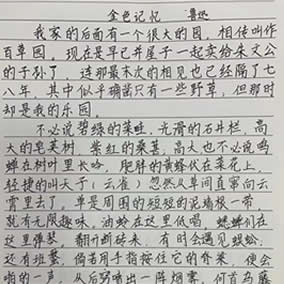 金色记忆 鲁迅
我家的后面有一个很大的园，相传叫作
百草园。现在是早已并屋子一起卖给朱文公
的子孙了，连那最末次的相见也已经隔了七
八年，其中似乎确凿只有一些野草；但那时
却是我的乐园。
不必说碧绿的菜畦，光滑的石井栏，高
大的皂荚树，紫红的桑葚，高大也不必说鸣
蝉在树叶里长吟，肥胖的黄蜂伏在菜花上，
轻捷的叫天子（云雀）忽然从草间直窜向云
霄里去了。单是周围的短短的泥墙根一带
就有无限趣味。油蛉在这里低唱，蟋蟀们在
这里弹琴。翻开断砖来，有时会遇见蜈蚣；
还有斑蝥，倘若用手指按住它的脊梁，便会
啪的一声，从后窍喷出一阵烟雾。何首乌藤